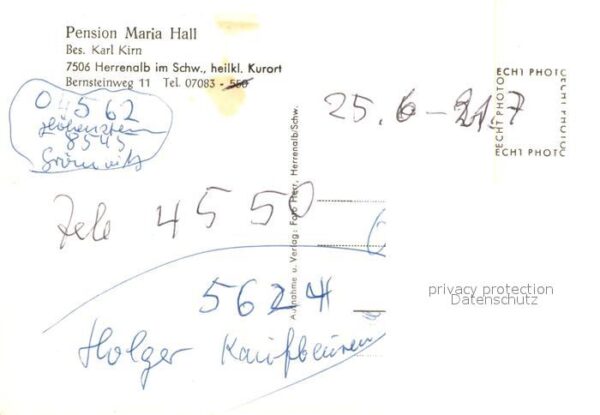 Pension Maria Hall
Bes. Karl Kirn
7506 Herrenalb im Schw., heilkl. Kurort
Bernsteinweg 11 Tel. 07083 - 550
04562
8545
25. 6 - 21.7
ECHT PHOTO
ECHT PHOTO
ECHT PHOTO
ECHT PHOTO
Aufnahme u. Verlag: Foto Herr, Herrenalb/Schw.
Tele 4550
5624
Holger Kaufbeuren
privacy protection
Datenschutz